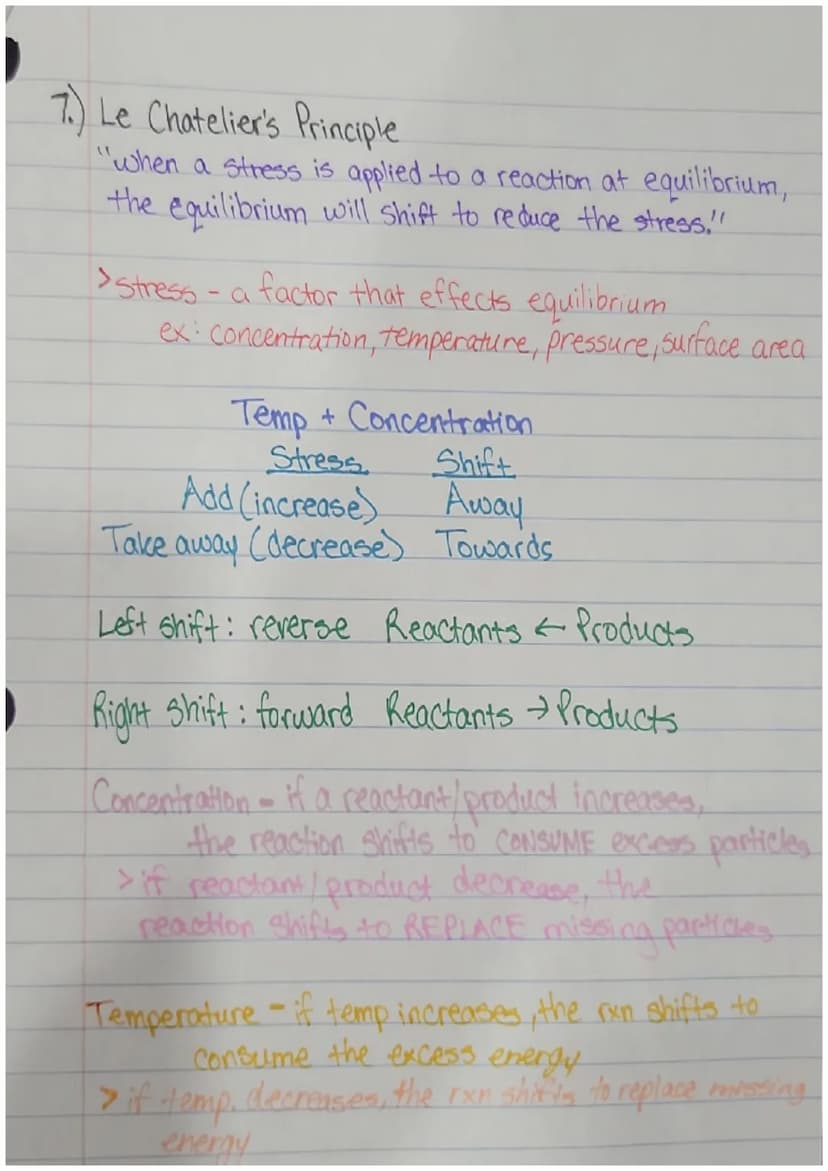 7.) Le Chatelier's Principle
"when a stress is applied to a reaction at equilibrium,
the equilibrium will shift to reduce the stress."
>stress - a factor that effects equilibrium
ex: concentration, temperature, pressure, surface area
Temp + Concentration
Stress Shift
Add (increase) Away
Take away (decrease) Towards
Left shift: reverse Reactants ← Products
Right shift: forward Reactants → Products
Concentration - if a reactant/product increases,
the reaction shifts to CONSUME excess particles
>if reactant/product decrease, the
reaction shifts to REPLACE missing particles
Temperature - if temp increases, the rxn shifts to
consume the excess energy
>if temp. decreases, the rxn shifts to replace missing
energy